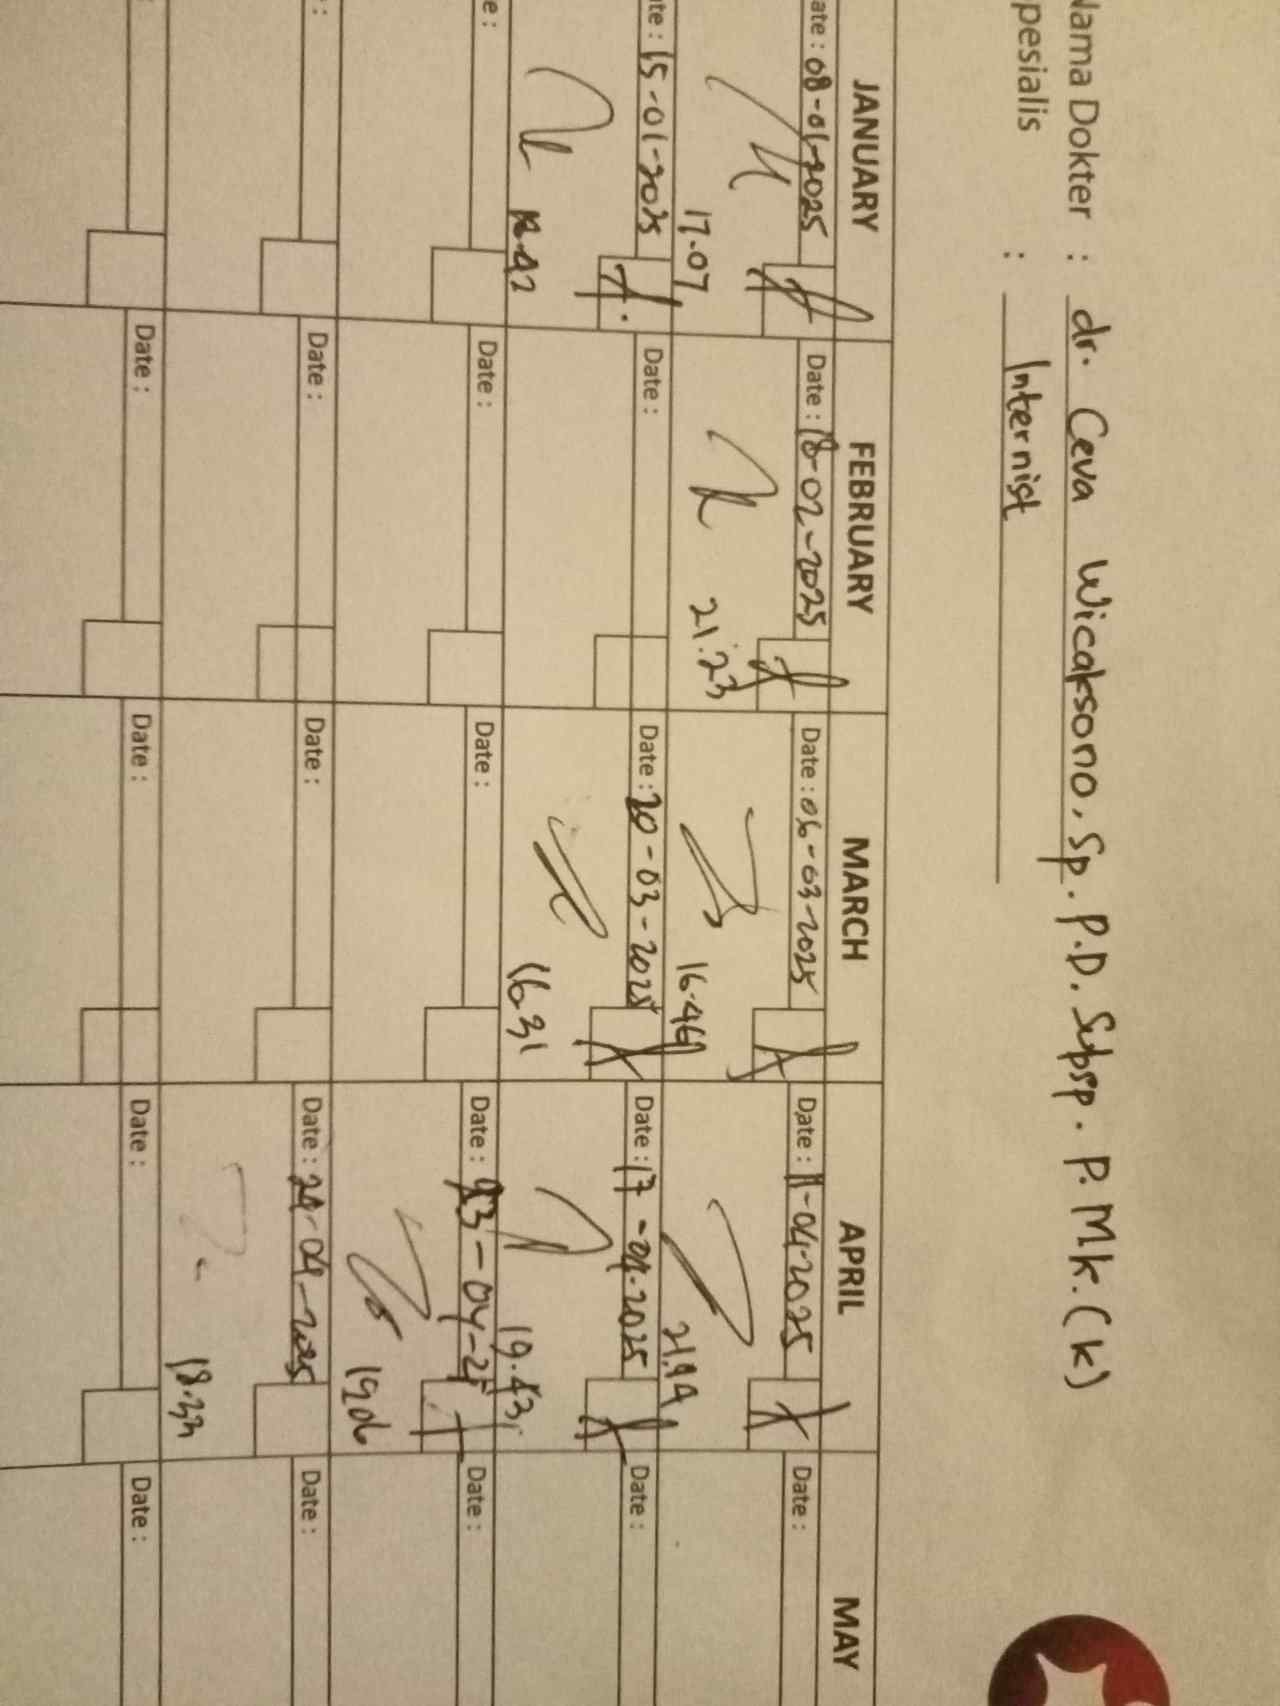 Nama Dokter : dr. Ceva Wicaksono, Sp. P.D. Subsp. P.Mk.(k)
pesialis : Internist
JANUARY FEBRUARY MARCH APRIL MAY
ate : 08-01-2025 Date : 18-02-2025 Date : 06-03-2025 Date : 11-04-2025 Date :
17.07 21.23 16.46
ate : 15-01-2025 Date : Date : 20-03-2025 Date : 17-04-2025 Date :
16.31 19.43
e : Date : Date : Date : 23-04-25 Date :
19.06
: Date : Date : Date : 24-04-2025 Date :
18.33
: Date : Date : Date : Date :